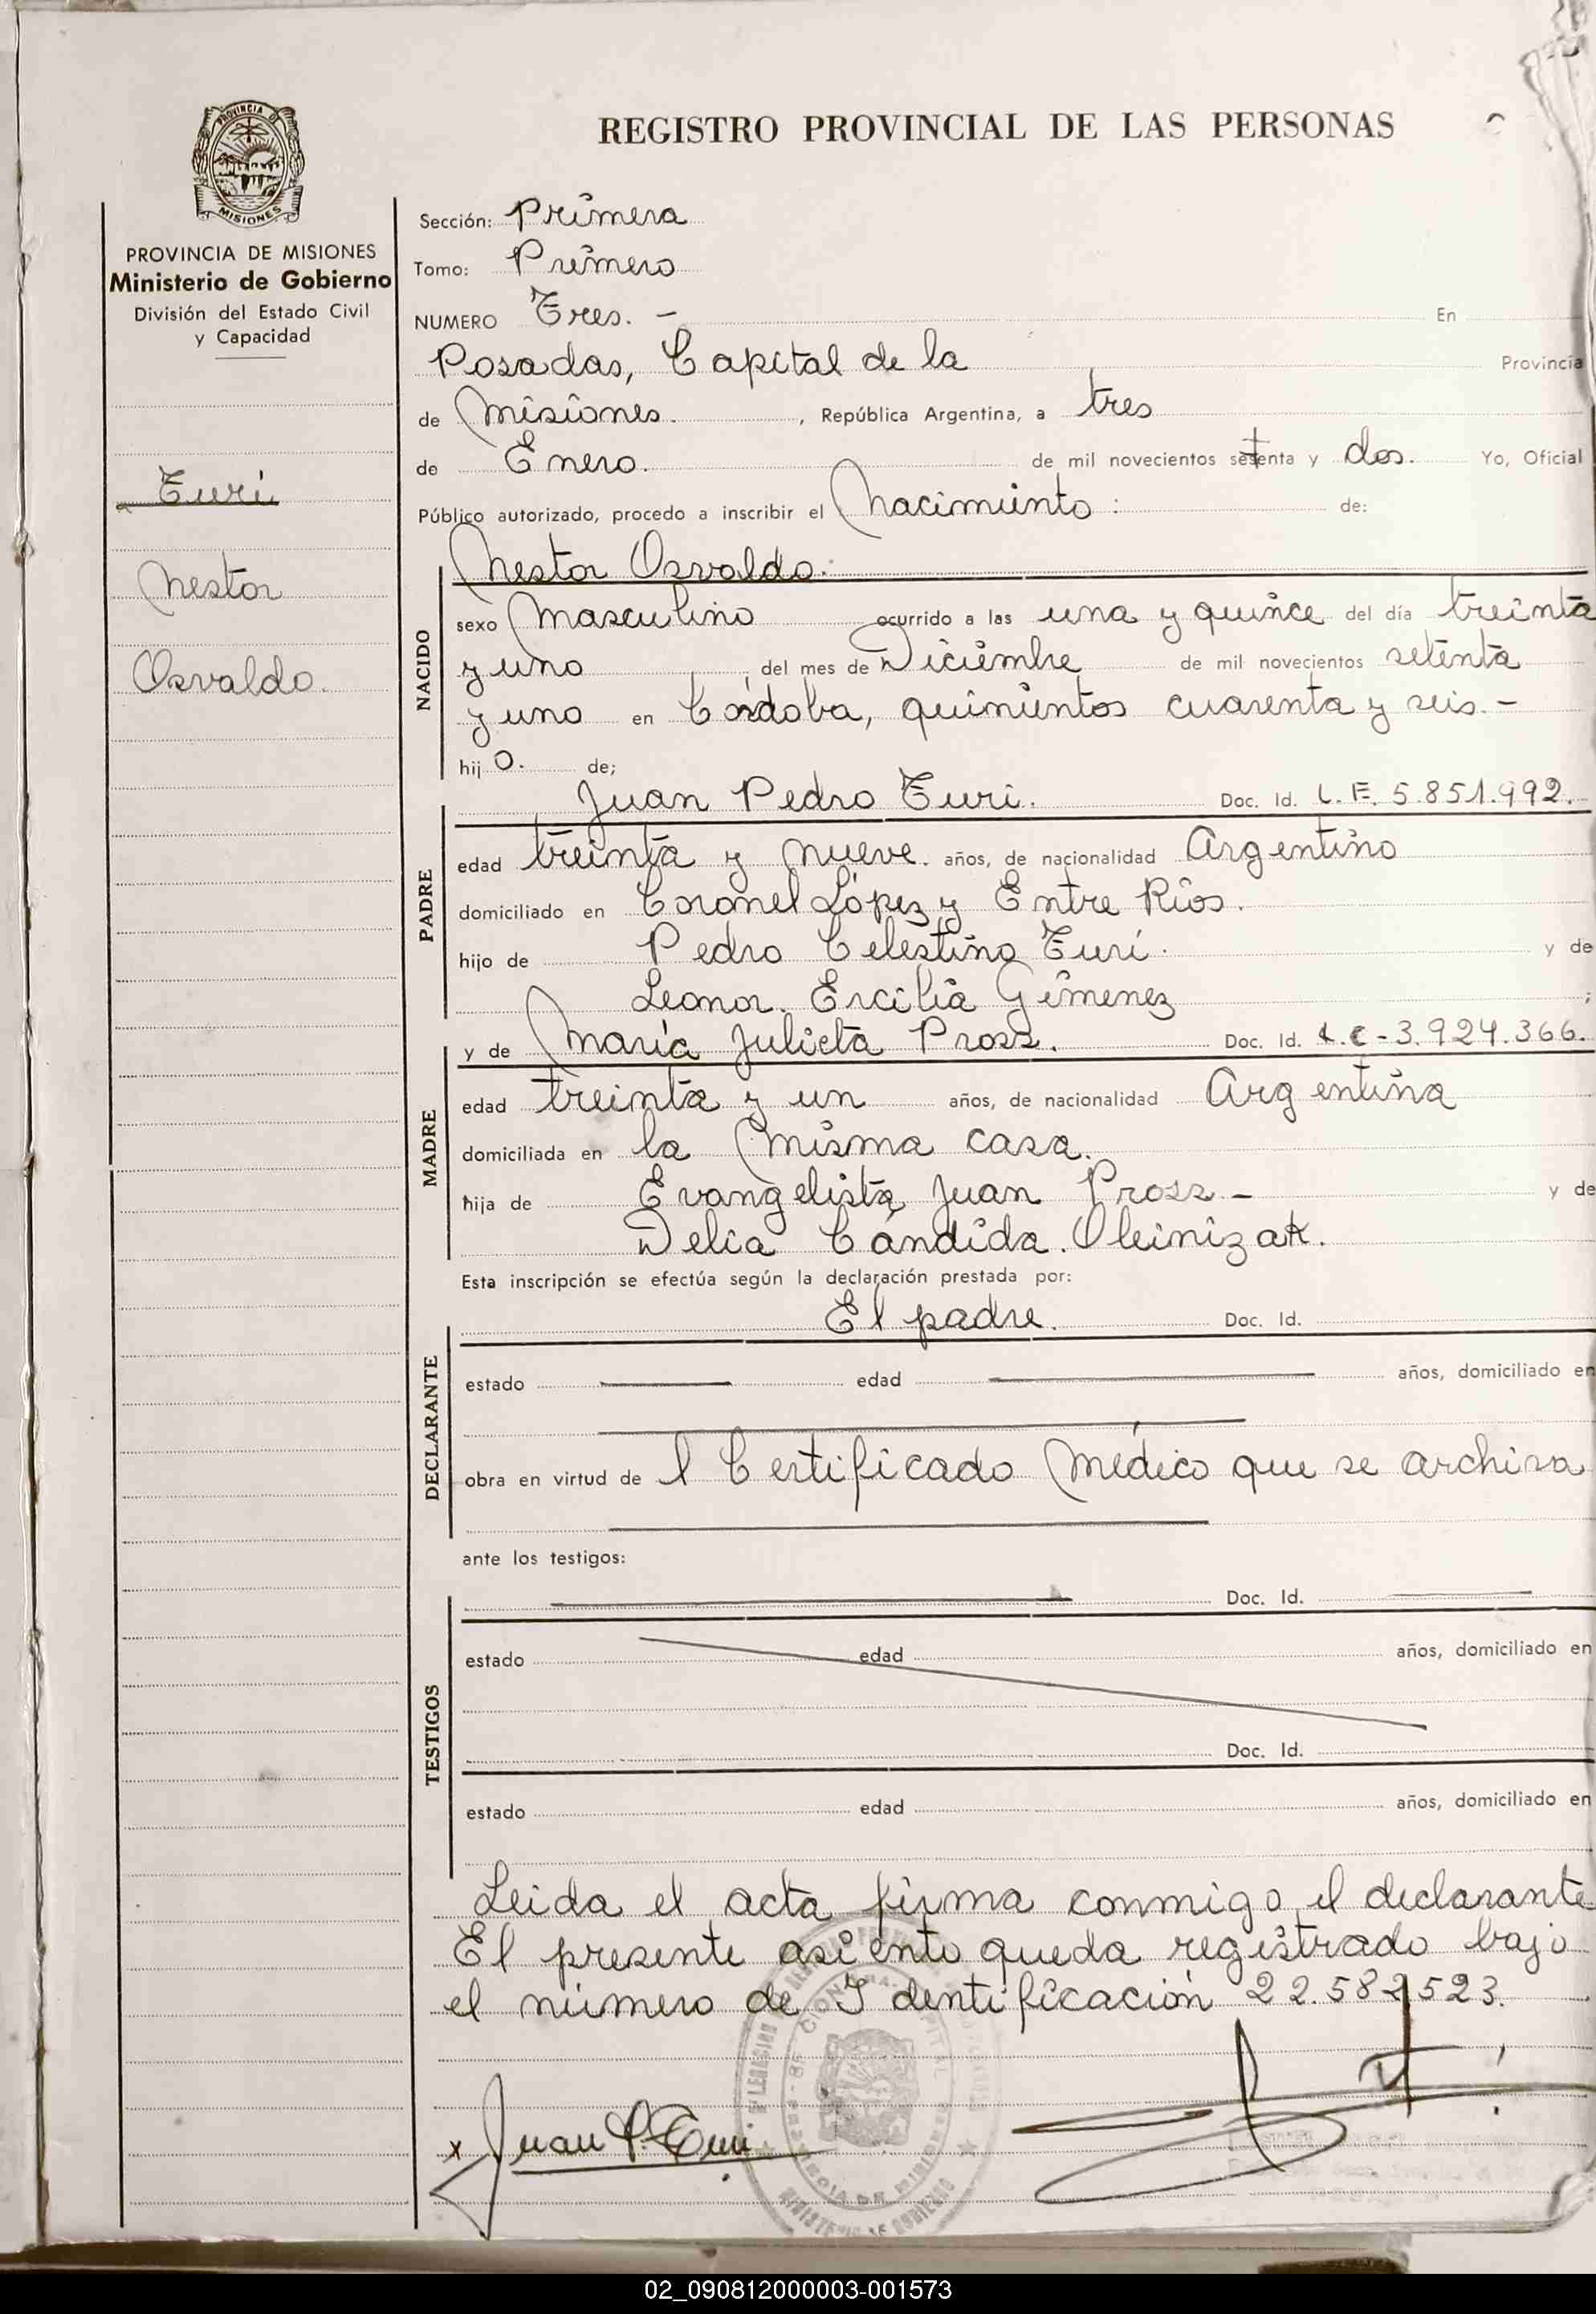 REGISTRO PROVINCIAL DE LAS PERSONAS
PROVINCIA DE
MISIONES
PROVINCIA DE MISIONES
Ministerio de Gobierno
División del Estado Civil
y Capacidad
Turi
Nestor
Osvaldo.
Sección: Primera
Tomo: Primero
NUMERO Tres. - En
Posadas, Capital de la Provincia
de Misiones. , República Argentina, a tres
de Enero. de mil novecientos setenta y dos. Yo, Oficial
Público autorizado, procedo a inscribir el Nacimiento : de:
Nestor Osvaldo.
NACIDO
sexo Masculino ocurrido a las una y quince del día treinta
y uno del mes de Diciembre de mil novecientos setenta
y uno en Córdoba, quinientos cuarenta y seis. -
hij o. de;
Juan Pedro Turi. Doc. Id. L.E. 5.851.992.
PADRE
edad treinta y nueve. años, de nacionalidad Argentino
domiciliado en Coronel López y Entre Ríos.
hijo de Pedro Celestino Turi. y de
Leonor. Ercilia Gimenez ;
y de María Julieta Pross. Doc. Id. L.C - 3.924.366.
MADRE
edad treinta y un años, de nacionalidad Argentina
domiciliada en la misma casa.
hija de Evangelista Juan Pross - y de
Delia Cándida. Oleinizak.
Esta inscripción se efectúa según la declaración prestada por:
El padre. Doc. Id.
DECLARANTE
estado edad años, domiciliado en
obra en virtud de l Certificado Médico que se archiva
ante los testigos:
Doc. Id.
TESTIGOS
estado edad años, domiciliado en
Doc. Id.
estado edad años, domiciliado en
Leida el acta firma conmigo el declarante
El presente asiento queda registrado bajo
el número de Identificación 22.582523.
x Juan P. Turi
02_090812000003-001573